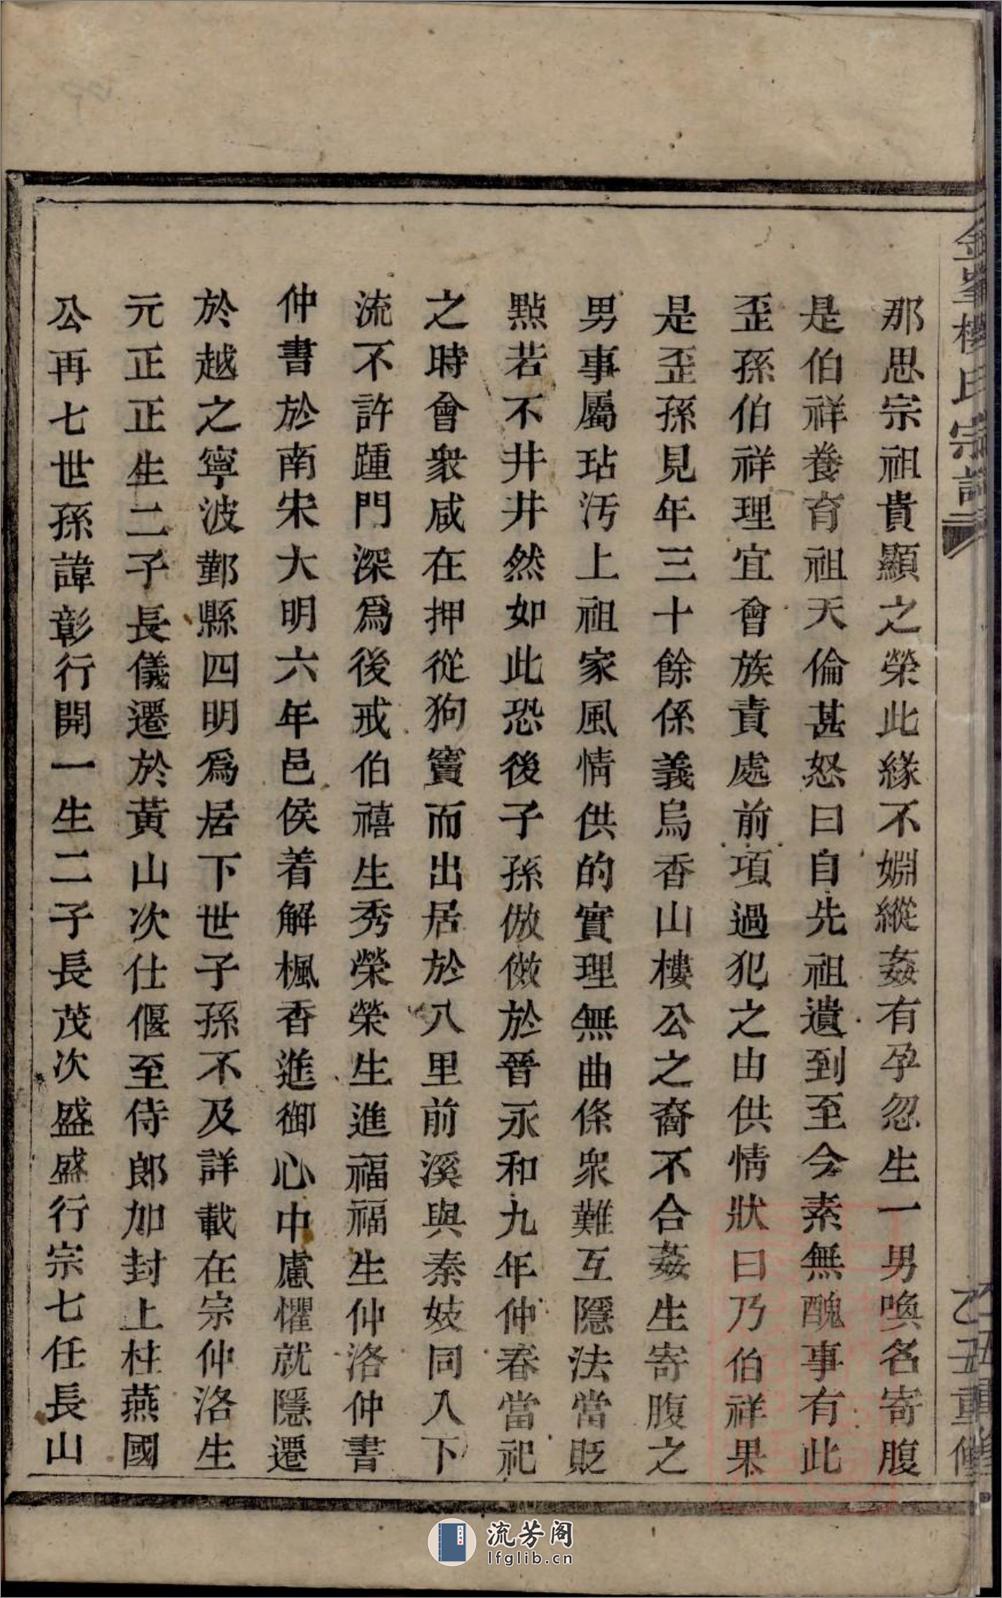 那思宗祖貴顯之榮此緣不嫺縱姦有孕忽生一男喚名寄腹
是伯祥養育祖天倫甚怒曰自先祖遺到至今素無醜事有此
歪孫伯祥理宜會族責處前項過犯之由供情狀曰乃伯祥果
是歪孫見年三十餘係義烏香山樓公之裔不合姦生寄腹之
男事屬玷汚上祖家風情供的實理無曲條衆難互隱法當貶
黜若不井井然如此恐後子孫倣傚於晉永和九年仲春當祀
之時會衆咸在押從狗竇而出居於八里前溪與秦妓同入下
流不許踵門深爲後戒伯禧生秀榮榮生進福福生仲洛仲書
仲書於南宋大明六年邑侯着解楓香進御心中慮懼就隱遷
於越之寧波鄞縣四明爲居下世子孫不及詳載在宗仲洛生
元正正生二子長儀遷於黃山次仕偃至侍郎加封上柱燕國
公再七世孫諱彰行開一生二子長茂次盛盛行宗七任長山
樓氏宗譜
乙丑重修
流芳阁
lfglib.cn